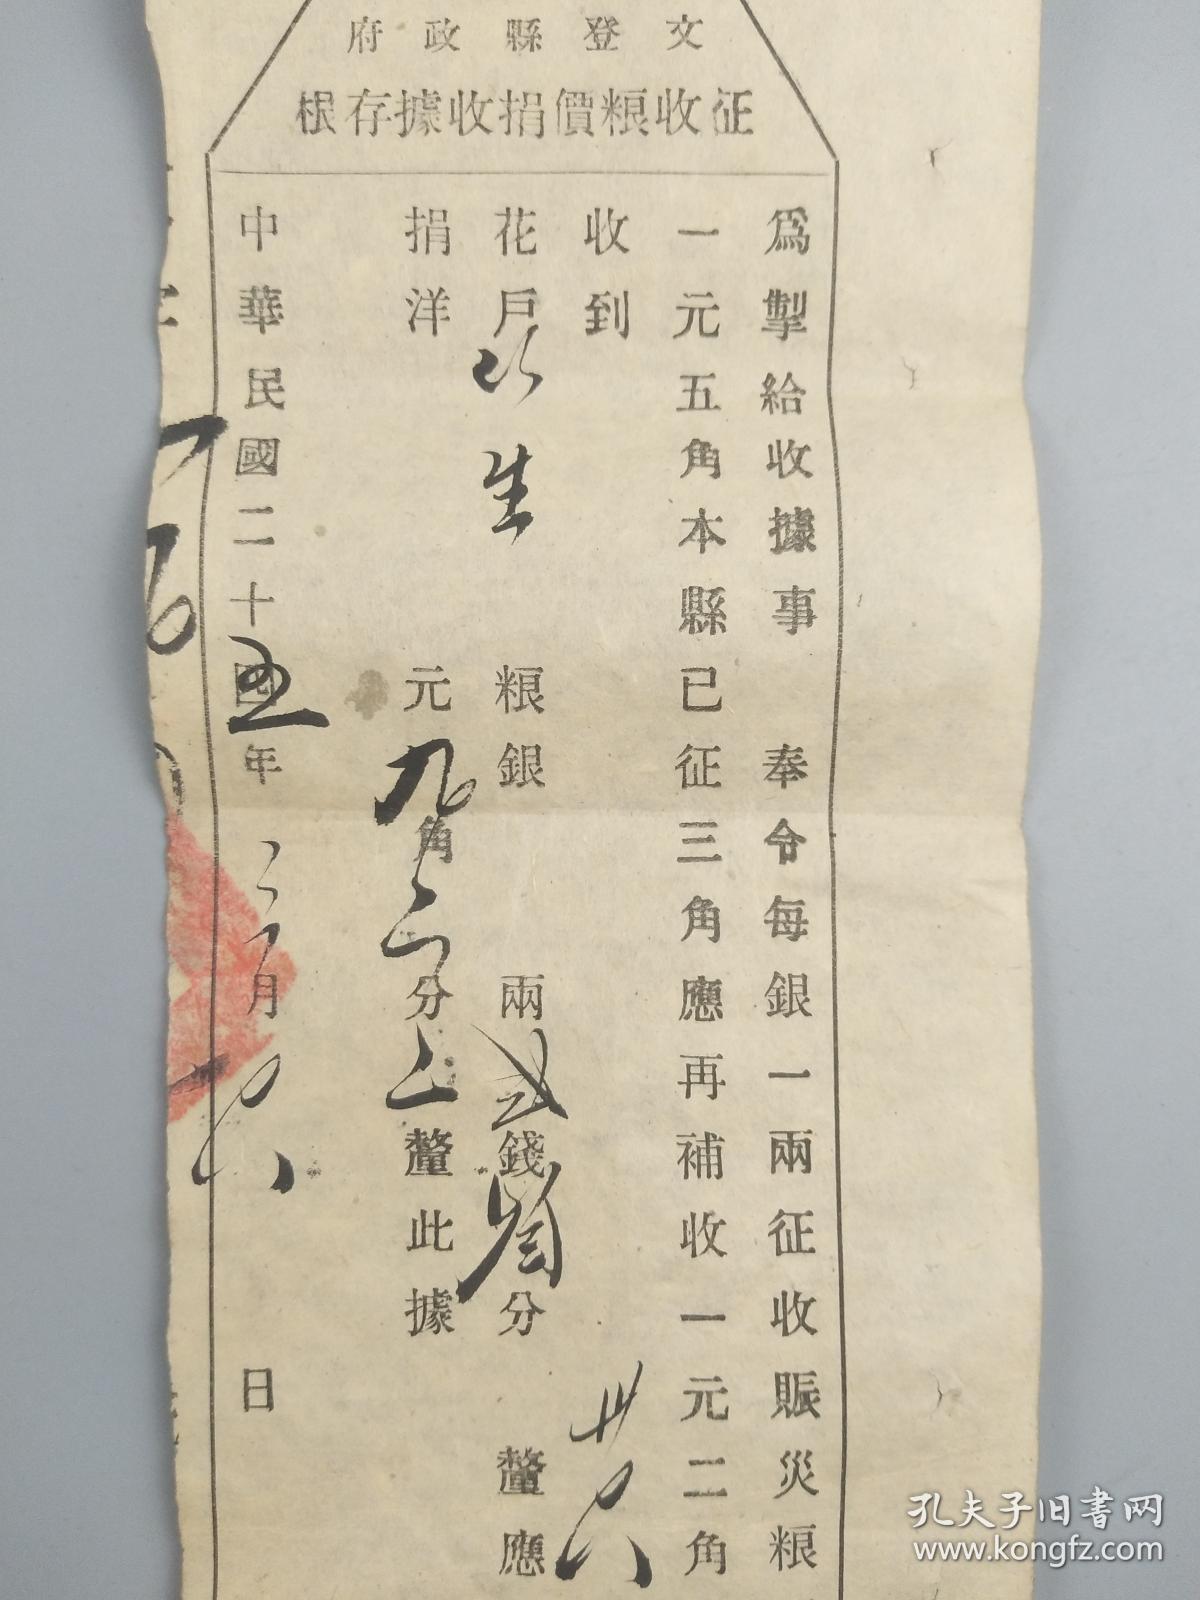 文登縣政府
征收粮價捐收據存根
爲掣給收據事　奉令每銀一兩征收賑災粮
一元五角本縣已征三角應再補收一元二角
收到
花戶　生　粮銀　兩　錢　分　釐應
捐洋　元九角二分二釐此據
中華民國二十五年二月　日
孔夫子旧书网
www.kongfz.com